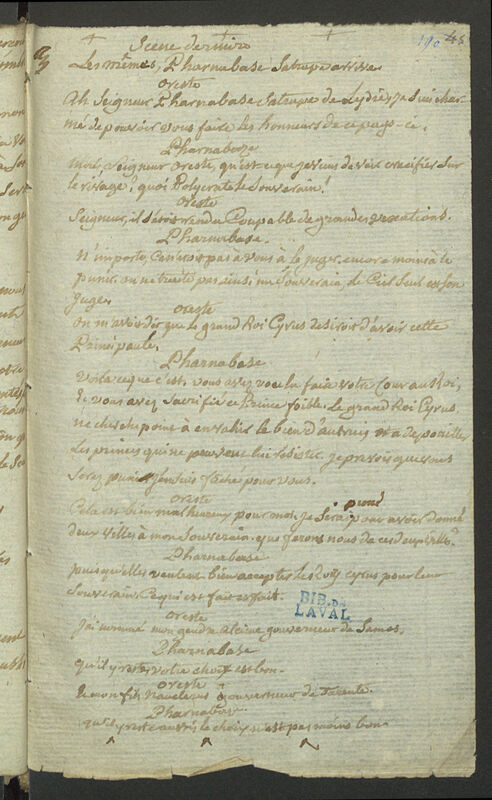 190 45
Scene derniere
Les mêmes, Pharnabase Satrape arrive
oreste
Ah Seigneur Pharnabase Satrape de Lydie, je suis char-
mé de pouvoir vous faire les honneurs de ce pays-ci.
Pharnabaze
mais, Seigneur oreste, qu'est ce que je viens de voir crucifié sur
le rivage? quoi Polycrate le Souverain!
oreste
Seigneur, il s'étoit rendu Coupable de grandes vexations.
Pharnabase.
N'importe, ce n'étoit pas à vous à le juger, encore moins à le
punir. on ne traite pas ainsi un Souverain, le Ciel Seul est son
juge.
oreste
on m'avoit dit que le grand Roi Cyrus desiroit d'avoir cette
Principauté.
Pharnabase
voila ce que c'est, vous avez voulu faire votre Cour au Roi,
& vous avez Sacrifié ce Prince foible. Le grand Roi Cyrus
ne cherche point à envahir le bien d'autrui et a depouiller
Les princes qui ne peuvent lui resister. je prevois que vous
Serez puni j'en suis faché pour vous.
oreste
Cela est bien malheureux pour moi, je Serai puni pour avoir donné
deux villes à mon Souverain. que ferons nous de ces deux villes.
Pharnabase
puisqu'elles veulent bien accepter le Roy cyrus pour leur
Souverain. Ce qui est fait est fait.
BIB. DE
LAVAL
oreste
J'ai nommé mon gendre alcine gouverneur de Samos,
Pharnabase
qu'il y reste votre choix est bon.
oreste
& mon fils gouverneur de
Pharnabase
qu'il y reste aussi, le choix n'est pas moins bon